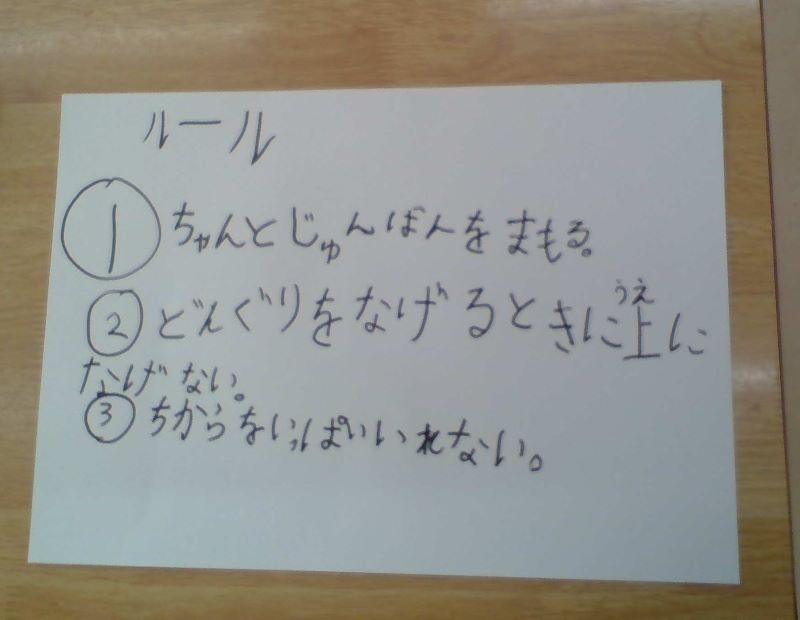 ルール
① ちゃんとじゅんばんをまもる。
② どんぐりをなげるときに上に
うえ
なげない。
③ ちからをいっぱいいれない。